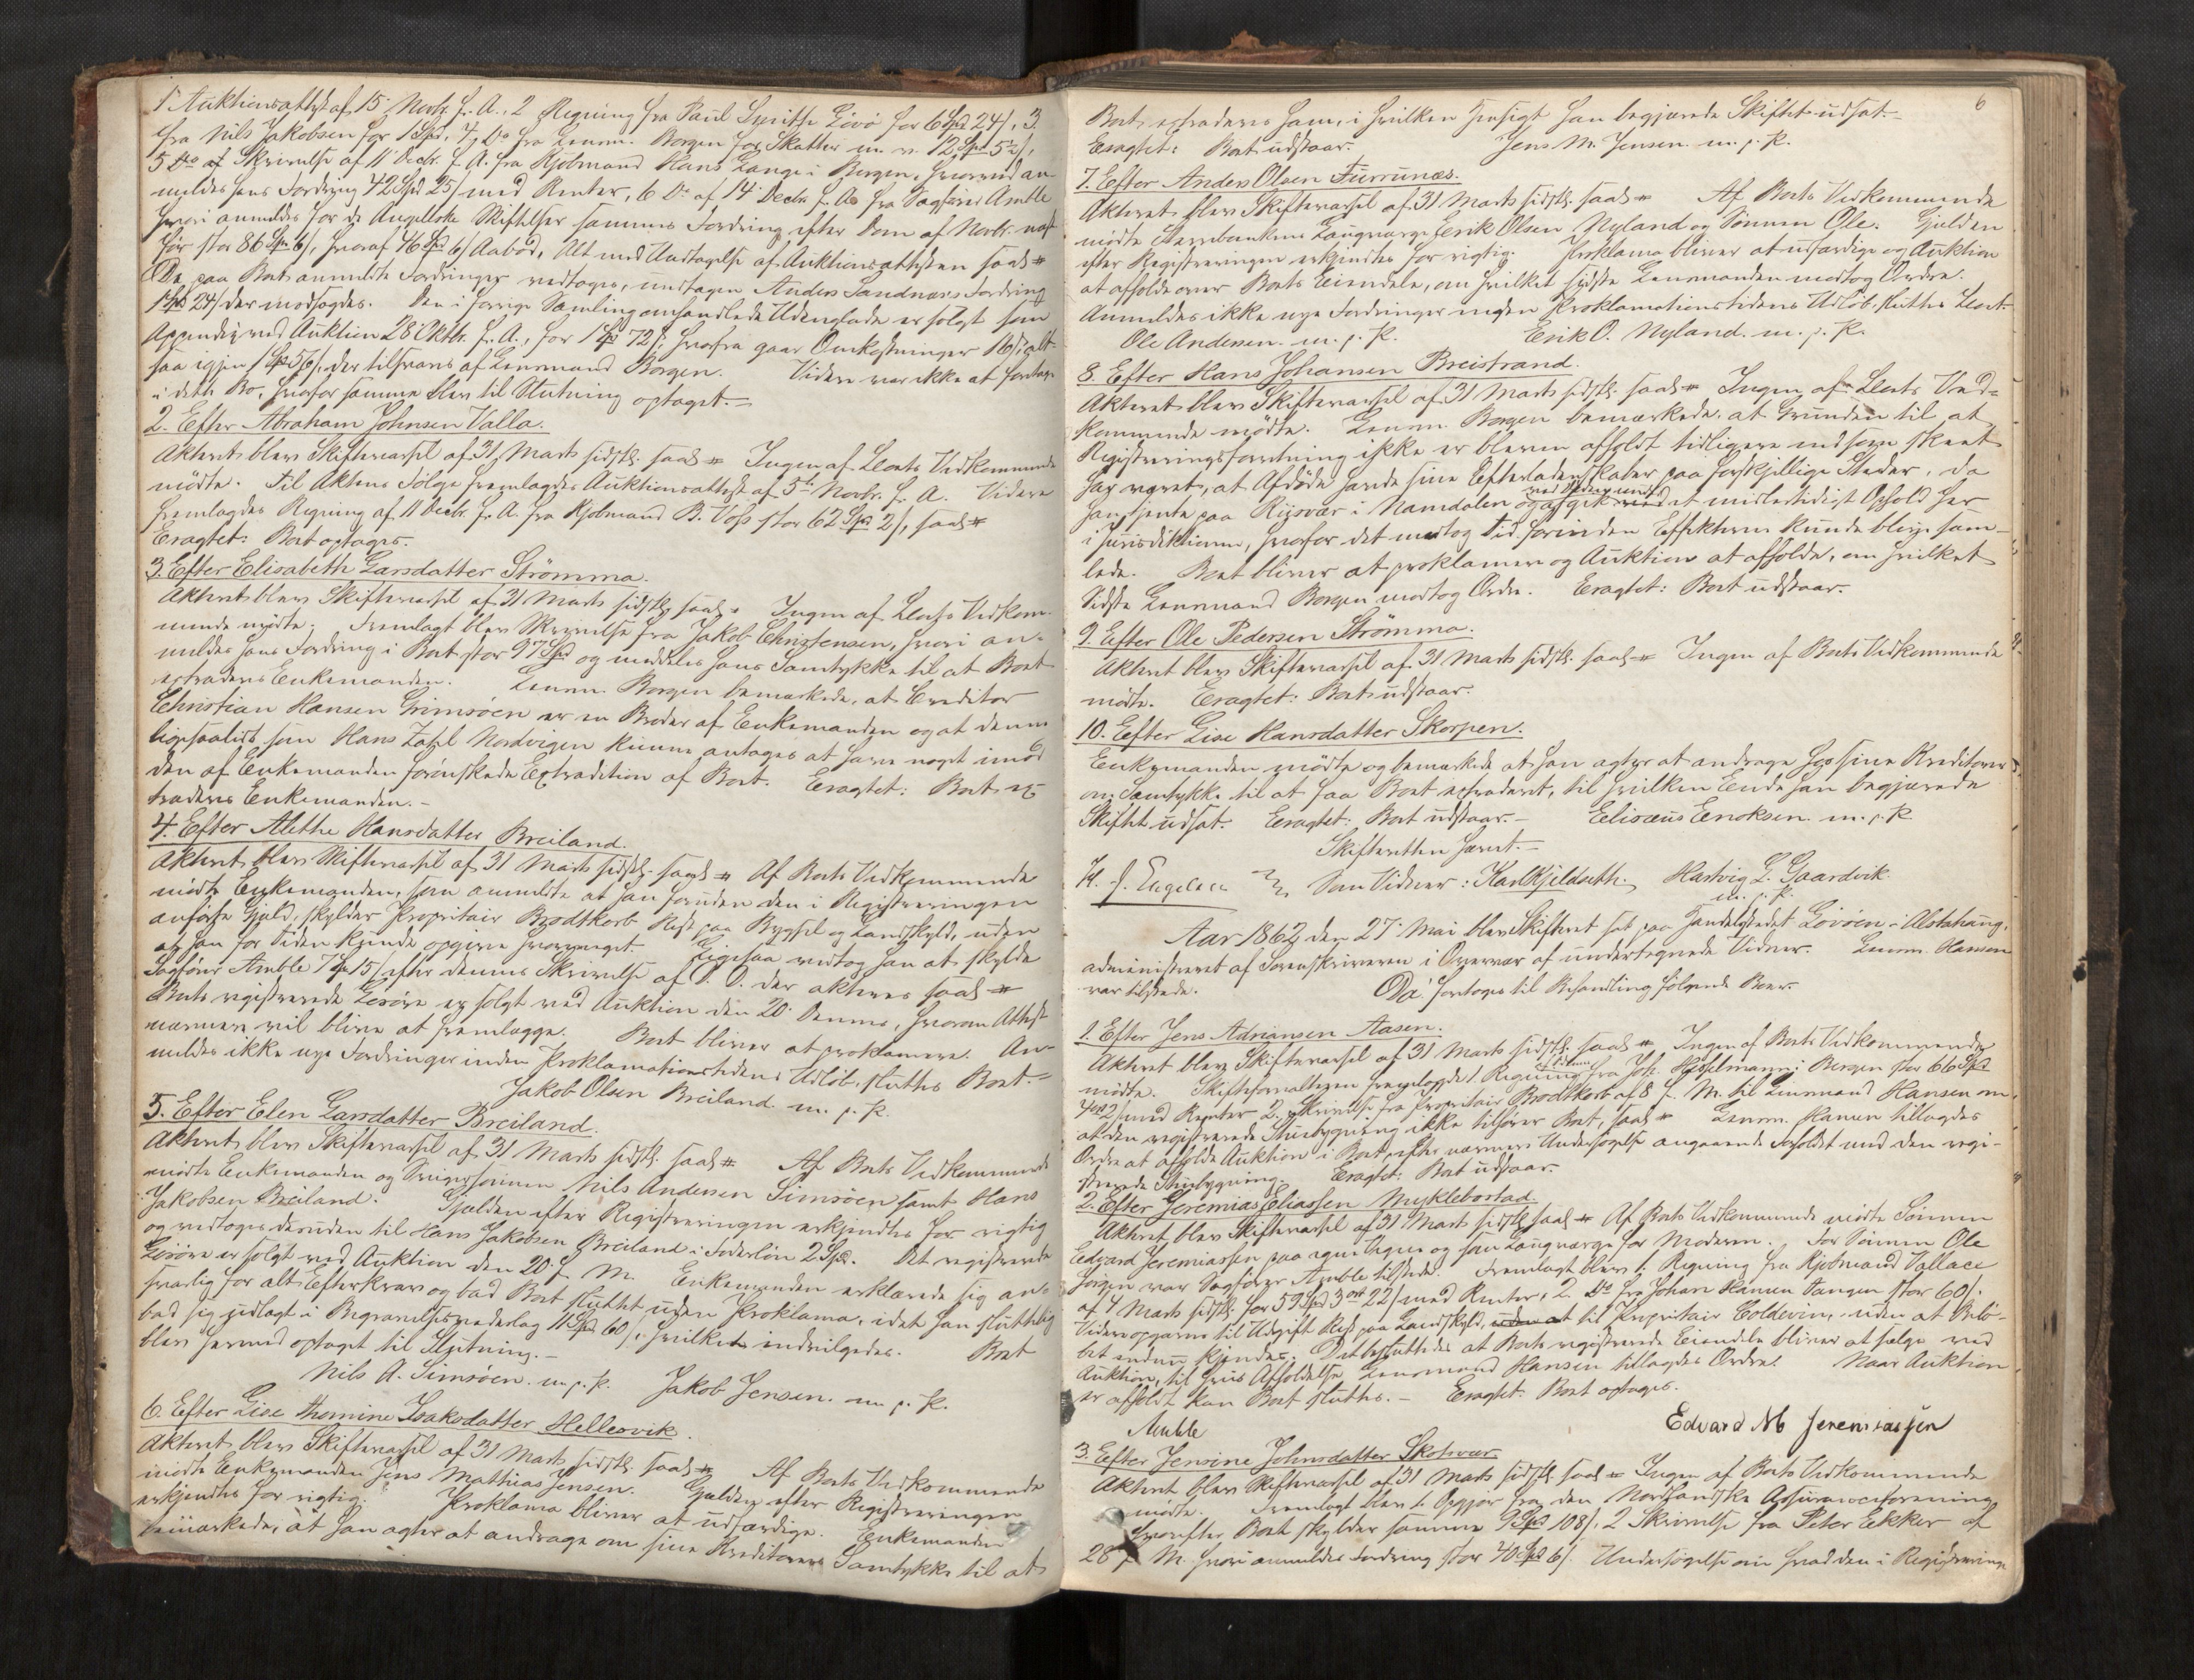 1 Auktionsattest af 15 Novbr. f. A., 2 Regning fra Paul Smith Lovö for 6 Spd 24 ß, 3
fra Nils Jakobsen for 1 Spd, 4 Do fra Lensm. Borgen for Skatter m. v. 12 Spd 5½ ß,
5 Do af Skrivelse af 11 Decbr. f. A. fra Kjöbmand Hans Lange i Bergen, hvorved an-
meldes hans Fordring 42 Spd 25 ß med Renter, 6 Do af 14 Decbr. f. A. fra Sagförer Amble
hvori anmeldes for de Angellske Stiftelser sammes Fordring efter Dom af Novbr.
för stor 86 Spd 6 ß, hvoraf 46 Spd 6 ß Aabod, Alt med Undtagelse af Auktionsattesten saal.
De paa Boet anmeldte Fordringer vedtoges, undtagen Anders Sandnæs's Fordring
1 Spd 24 ß der modsagdes. Den i forrige Samling omhandlede Udenglade er solgt som
Appendix ved Auktion 28 Oktbr. f. A., for 1 Spd 72 ß, hvorfra gaar Omkostninger 16 ß, alt-
saa igjen 1 Spd 56 ß, der tilsvares af Lensmand Borgen. Videre var ikke at foretage
i dette Bo, hvorfor samme blev til Slutning optaget.
2. Efter Abraham Johnsen Valla.
Akteret blev Skiftevarsel af 31 Marts sidstl. saal. Ingen af Boets Vedkommende
mödte. Til Aktens Fölge fremlagdes Auktionsattest af 5te Novbr. f. A. Videre
fremlagdes Regning af 11 Decbr. f. A. fra Kjöbmand B. Voss stor 62 Spd 2 ß, saal.
Eragtet: Boet optages.
3. Efter Elisabeth Larsdatter Strömmo.
Akteret blev Skiftevarsel af 31 Marts sidstl. saal. Ingen af Boets Vedkom-
mende mödte. Fremlagt blev Skrivelse fra Jakob Christensen, hvori an-
meldes hans Fordring i Boet stor 97 Spd og meddeles hans Samtykke til at Boet
extraderes Enkemanden. Lensm. Borgen bemærkede, at Creditor
Christian Hansen Grimsöen er en Broder af Enkemanden og at denne
ligesaalidt som Hans Zahl Nordvigen kunne antages at have noget imod
den af Enkemanden forönskede Extradition af Boet. Eragtet: Boet ex-
traderes Enkemanden.
4. Efter Alethe Hansdatter Breiland.
Akteret blev Skiftevarsel af 31 Marts sidstl. saal. Af Boets Vedkommende
mödte Enkemanden, som anmeldte at han foruden den i Registreringen
anförte Gjæld, skylder Propritair Brodtkorb Rest paa Bygsel og Landskyld, uden
at han for Tiden kunde opgive hvormeget. Ligesaa vedtog han at skylde
Sagförer Amble 7 Spd 15 ß efter dennes Skrivelse af D. D. der akteres saal.
Boets registrerede Lösöre er solgt ved Auktion den 20 dennes, hvorom Attest
nærmere vil blive at fremlægge. Boet bliver at proklamere. An-
meldes ikke nye Fordringer inden Proklamationstidens Udlöb, sluttes Boet.
Jakob Olsen Breiland. m. p. P.
5. Efter Elen Larsdatter Breiland.
Akteret blev Skiftevarsel af 31 Marts sidstl. saal. Af Boets Vedkommende
mödte Enkemanden og Svigersönnen Nils Andersen Simsöen samt Hans
Jakobsen Breiland. Gjælden efter Registreringen erkjendtes for rigtig
og vedtoges desuden til Hans Jakobsen Breiland i Foderlön 2 Spd. Det registrerede
Lösöre er solgt ved Auktion den 20 f. M. Enkemanden erklærede sig an-
svarlig for alt Efterkrav og bad Boet sluttet uden Proklama, idet han sluttelig
bad sig udlagt i Begravelsesvederlag 11 Spd 60 ß, hvilket indvilgedes. Boet
blev hermed optaget til Slutning.
Nils A. Simsöen. m. p. P. Jakob Jensen. m. p. P.
6. Efter Lise Thomine Isaksdatter Hellesvik.
Akteret blev Skiftevarsel af 31 Marts sidstl. saal. Af Boets Vedkommende
mödte Enkemanden Jens Mathias Jensen. Gjælden efter Registreringen
erkjendtes for rigtig. Proklama bliver at udfærdige. Enkemanden
bemærkede, at han agter at andrage om sine Kreditorers Samtykke til at
6
Boet extraderes ham, i hvilken Hensigt han begjærede Skiftet udsat.
Eragtet: Boet udstaar. Jens M. Jensen. m. p. P.
7. Efter Anders Olsen Furrunæs.
Akteret blev Skiftevarsel af 31 Marts sidstl. saal. Af Boets Vedkommende
mödte Laugværge Erik Olsen Nyland og Sönnen Ole. Gjælden
efter Registreringen erkjendtes for rigtig. Proklama bliver at udfærdige og Auktion
at afholde over Boets Eiendele, om hvilket sidste Lensmanden modtog Ordre.
Anmeldes ikke nye Fordringer inden Proklamationstidens Udlöb, sluttes Boet.
Ole Andersen. m. p. P. Erik O. Nyland. m. p. P.
8. Efter Hans Johansen Breistrand.
Akteret blev Skiftevarsel af 31 Marts sidstl. saal. Ingen af Boets Ved-
kommende mödte. Lensm. Borgen bemærkede, at Grunden til at
Registreringsforretning ikke er bleven afholdt tidligere end som skeet
har været, at Afdöde havde sine Efterladenskaber paa forskjellige Steder, da
han tjente paa Risvær i Namdalen og afgik ved Döden under et midlertidigt Ophold her
i Jurisdiktionen, hvorfor det medtog Tid forinden Effekterne kunde blive sam-
lede. Boet bliver at proklamere og Auktion at afholde, om hvilket
sidste Lensmand Borgen modtog Ordre. Eragtet: Boet udstaar.
9. Efter Ole Pedersen Strömmo.
Akteret blev Skiftevarsel af 31 Marts sidstl. saal. Ingen af Boets Vedkommende
mödte. Eragtet: Boet udstaar.
10. Efter Lise Hansdatter Skorpen.
Enkemanden mödte og bemærkede at han agter at andrage hos sine Kreditorer
om Samtykke til at faa Boet extraderet, til hvilken Ende han begjærede
Skiftet udsat. Eragtet: Boet udstaar. Elisæus Enoksen. m. p. P.
Skifteretten hævet.
H. J. Engelsen Som Vidner: Karl Kjeldseth. Hartvig L. Gaardvik.
m. p. P.
Aar 1862 den 27 Mai blev Skifteret sat paa Handelsstedet Lovöen i Alstahaug,
administreret af Sorenskriveren i Overvær af undertegnede Vidner. Lensm. Hansen
var tilstede. Da foretoges til Behandling fölgende Boer.
1. Efter Jens Adriansen Aasen.
Akteret blev Skiftevarsel af 31 Marts sidstl. saal. Ingen af Boets Vedkommende
mödte. Skifteforvalteren fremlagde 1 Regning fra Joh. Hesselmann i Bergen stor 66 Spd
4 ort 2 ß med Renter 2. Skrivelse fra Propritair Brodtkorb af 8 f. M. til Lensmand Hansen om,
at den registrerede Stuebygning ikke tilhörer Boet, saal. Lensm. Hansen tillagdes
Ordre at afholde Auktion i Boet, efter nærmere Undersögelse angaaende Forholdet med den regi-
strerede Stuebygning. Eragtet: Boet udstaar.
2. Efter Jeremias Eliassen Myklebostad.
Akteret blev Skiftevarsel af 31 Marts sidstl. saal. Af Boets Vedkommende mödte Sönnen
Edvard Jeremiassen paa egne Vegne og som Laugværge for Moderen. For Sönnen Ole
Jörgen var Sagförer Amble tilstede. Fremlagt blev 1. Regning fra Kjöbmand Vallace
af 4 Marts sidstl. for 59 Spd 3 ort 22 ß med Renter, 2. Do fra Johan Hansen Tangen stor 60 ß.
Videre opgaves til Udgift Rest paa Landskyld, til Propritair Coldevin, uden at Belö-
bet endnu kjendes. Det besluttedes at Boets registrerede Eiendele bliver at sælge ved
Auktion, til hvis Afholdelse Lensmand Hansen tillagdes Ordre. Naar Auktion
er afholdt kan Boet sluttes. Eragtet. Boet optages.
Amble Edvard M Jeremiassen
3. Efter Jervine Johnsdatter Skotsvær.
Akteret blev Skiftevarsel af 31 Marts sidstl. saal. Ingen af Boets Vedkommende
mödte. Fremlagt blev 1. Opgjör fra den Nordlandske Assuranceforening
hvorefter Boet skylder samme 9 Spd 108 ß, 2 Skrivelse fra Peter Ekker af
28 f. M. hvori anmeldes Fordring stor 40 Spd 6 ß. Undersögelse om hvad den i Registreringen